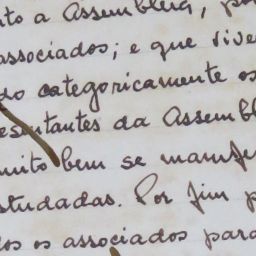 nto a Assembleia, po
associados; e que vive
do categoricamente os
esentantes da Assembl
muito bem se manife
studadas. Por fim p
os os associados para